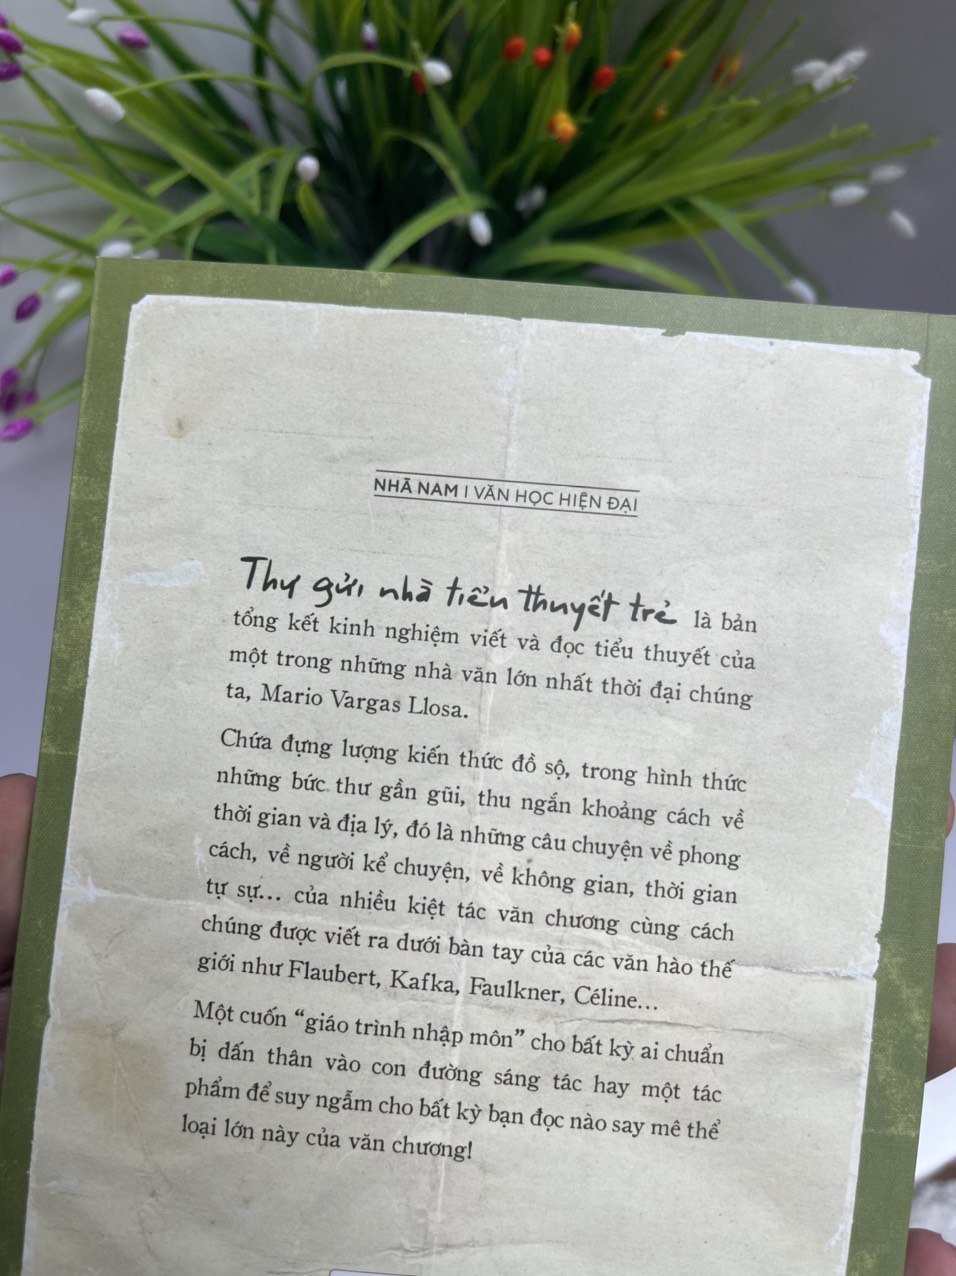 NHÃ NAM | VĂN HỌC HIỆN ĐẠI
Thư gửi nhà tiểu thuyết trẻ là bản
tổng kết kinh nghiệm viết và đọc tiểu thuyết của
một trong những nhà văn lớn nhất thời đại chúng
ta, Mario Vargas Llosa.
Chứa đựng lượng kiến thức đồ sộ, trong hình thức
những bức thư gần gũi, thu ngắn khoảng cách về
thời gian và địa lý, đó là những câu chuyện về phong
cách, về người kể chuyện, về không gian, thời gian
tự sự... của nhiều kiệt tác văn chương cùng cách
chúng được viết ra dưới bàn tay của các văn hào thế
giới như Flaubert, Kafka, Faulkner, Céline...
Một cuốn “giáo trình nhập môn” cho bất kỳ ai chuẩn
bị dấn thân vào con đường sáng tác hay một tác
phẩm để suy ngẫm cho bất kỳ bạn đọc nào say mê thể
loại lớn này của văn chương!